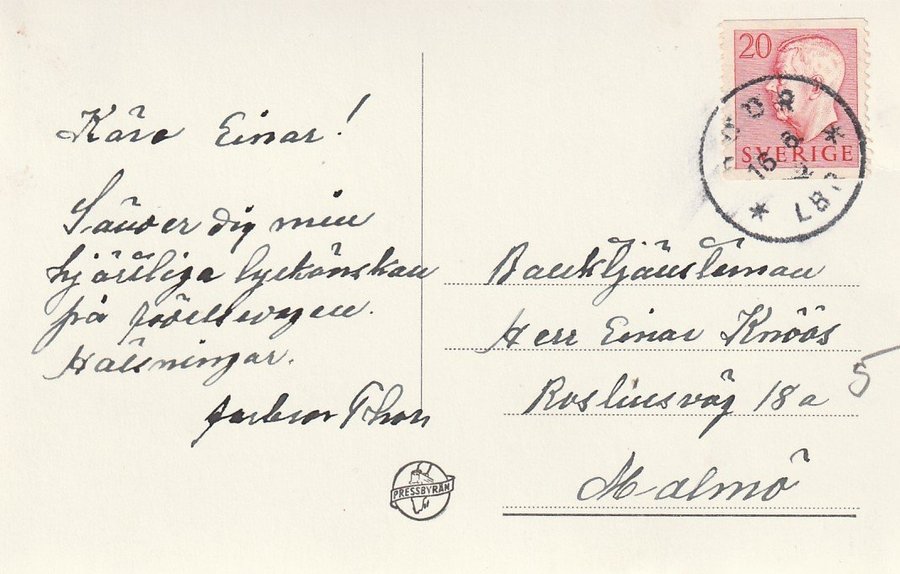 Käre Einar!
Sänder dig min
hjärtliga lyckönskan
på födelsedagen.
Hälsningar.
Thor
PRESSBYRÅN
20
SVERIGE
15 8
LBR
Banktjänsteman
Herr Einar Knöös
Rosliusväg 18a
5
Malmö